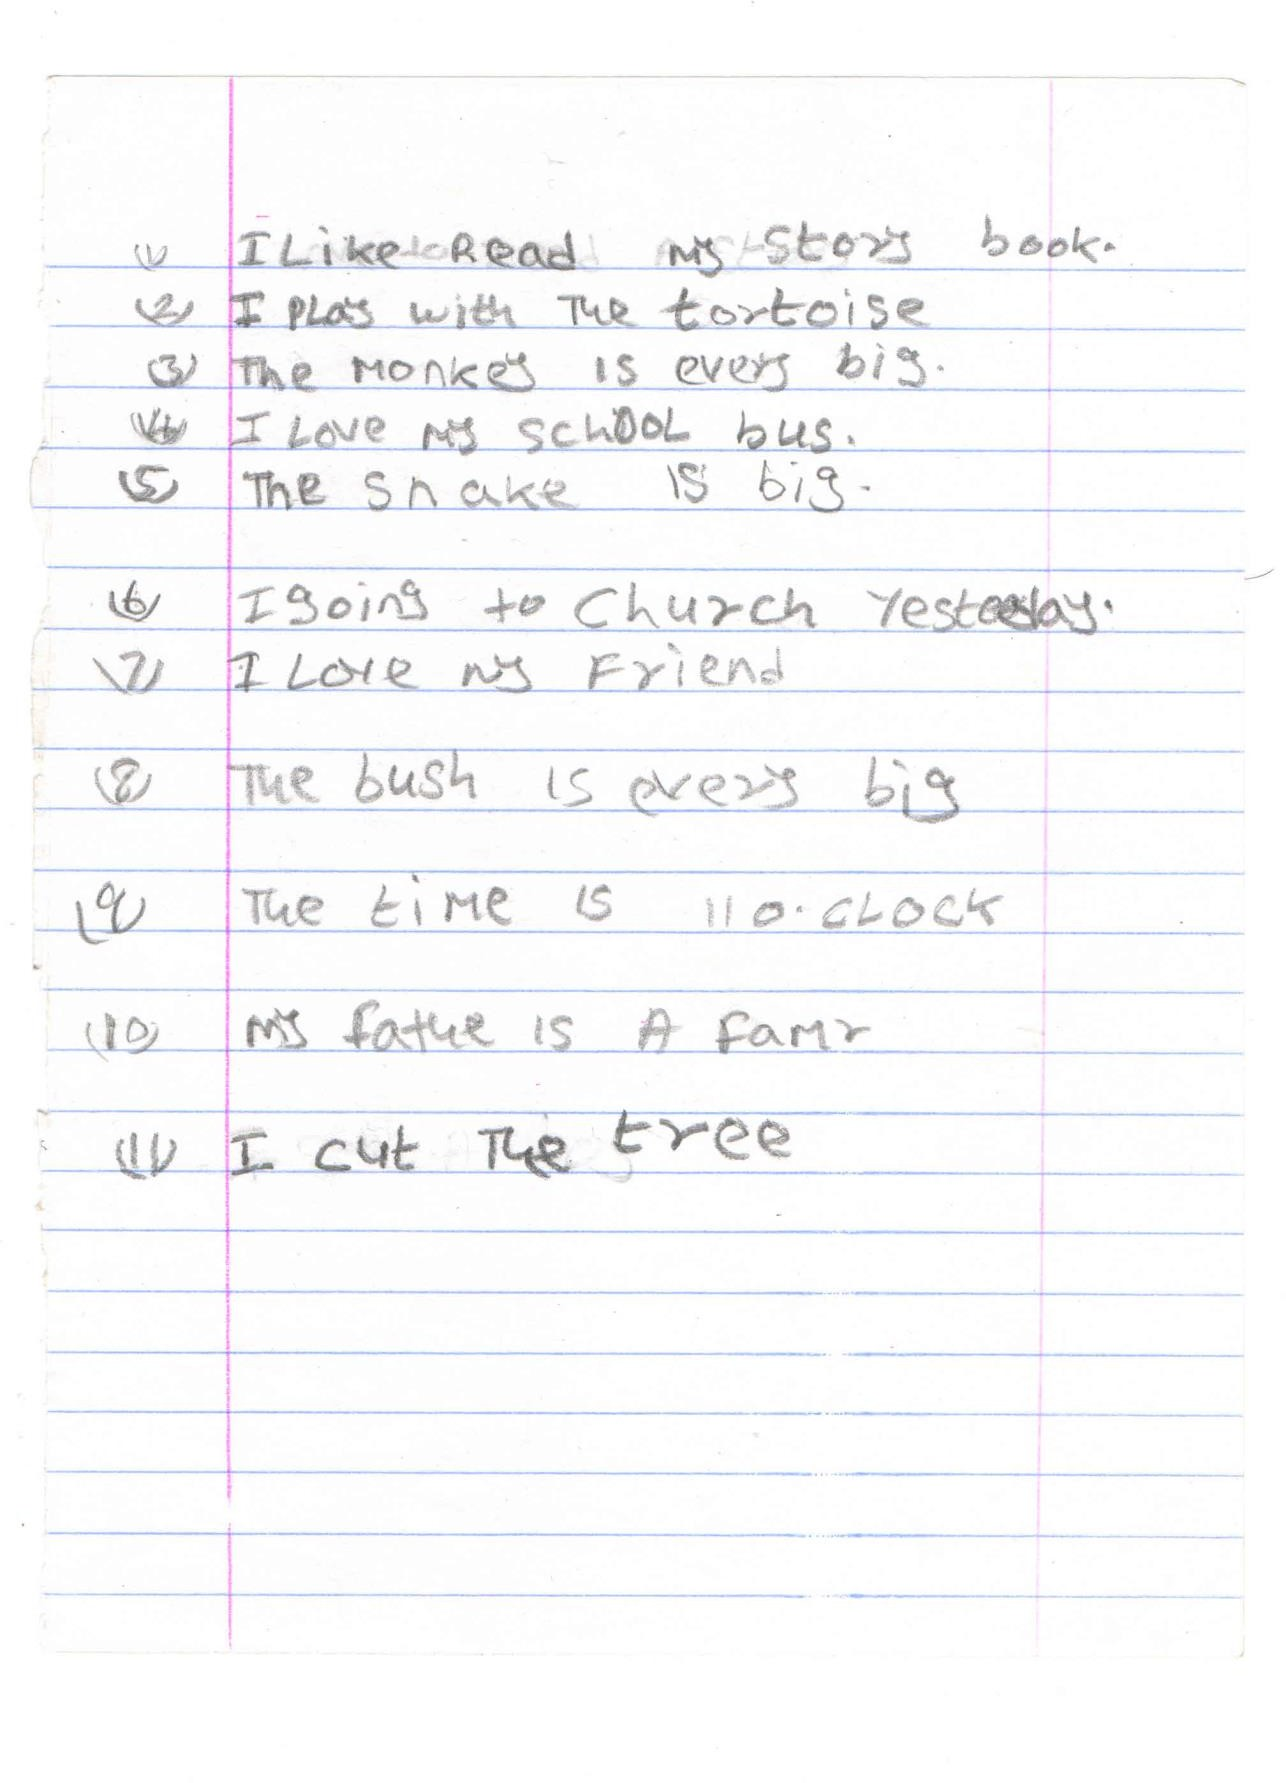 (1) I Like Read my story book.
(2) I PLay with The tortoise
(3) The Monkey is every big.
(4) I Love my SchOOL bus.
(5) The snake is big.
(6) I going to Church Yesterday.
(7) I Love my Friend
(8) The bush is every big
(9) The time is 11 o.cLock
(10) my fathe is A famr
(11) I cut The tree